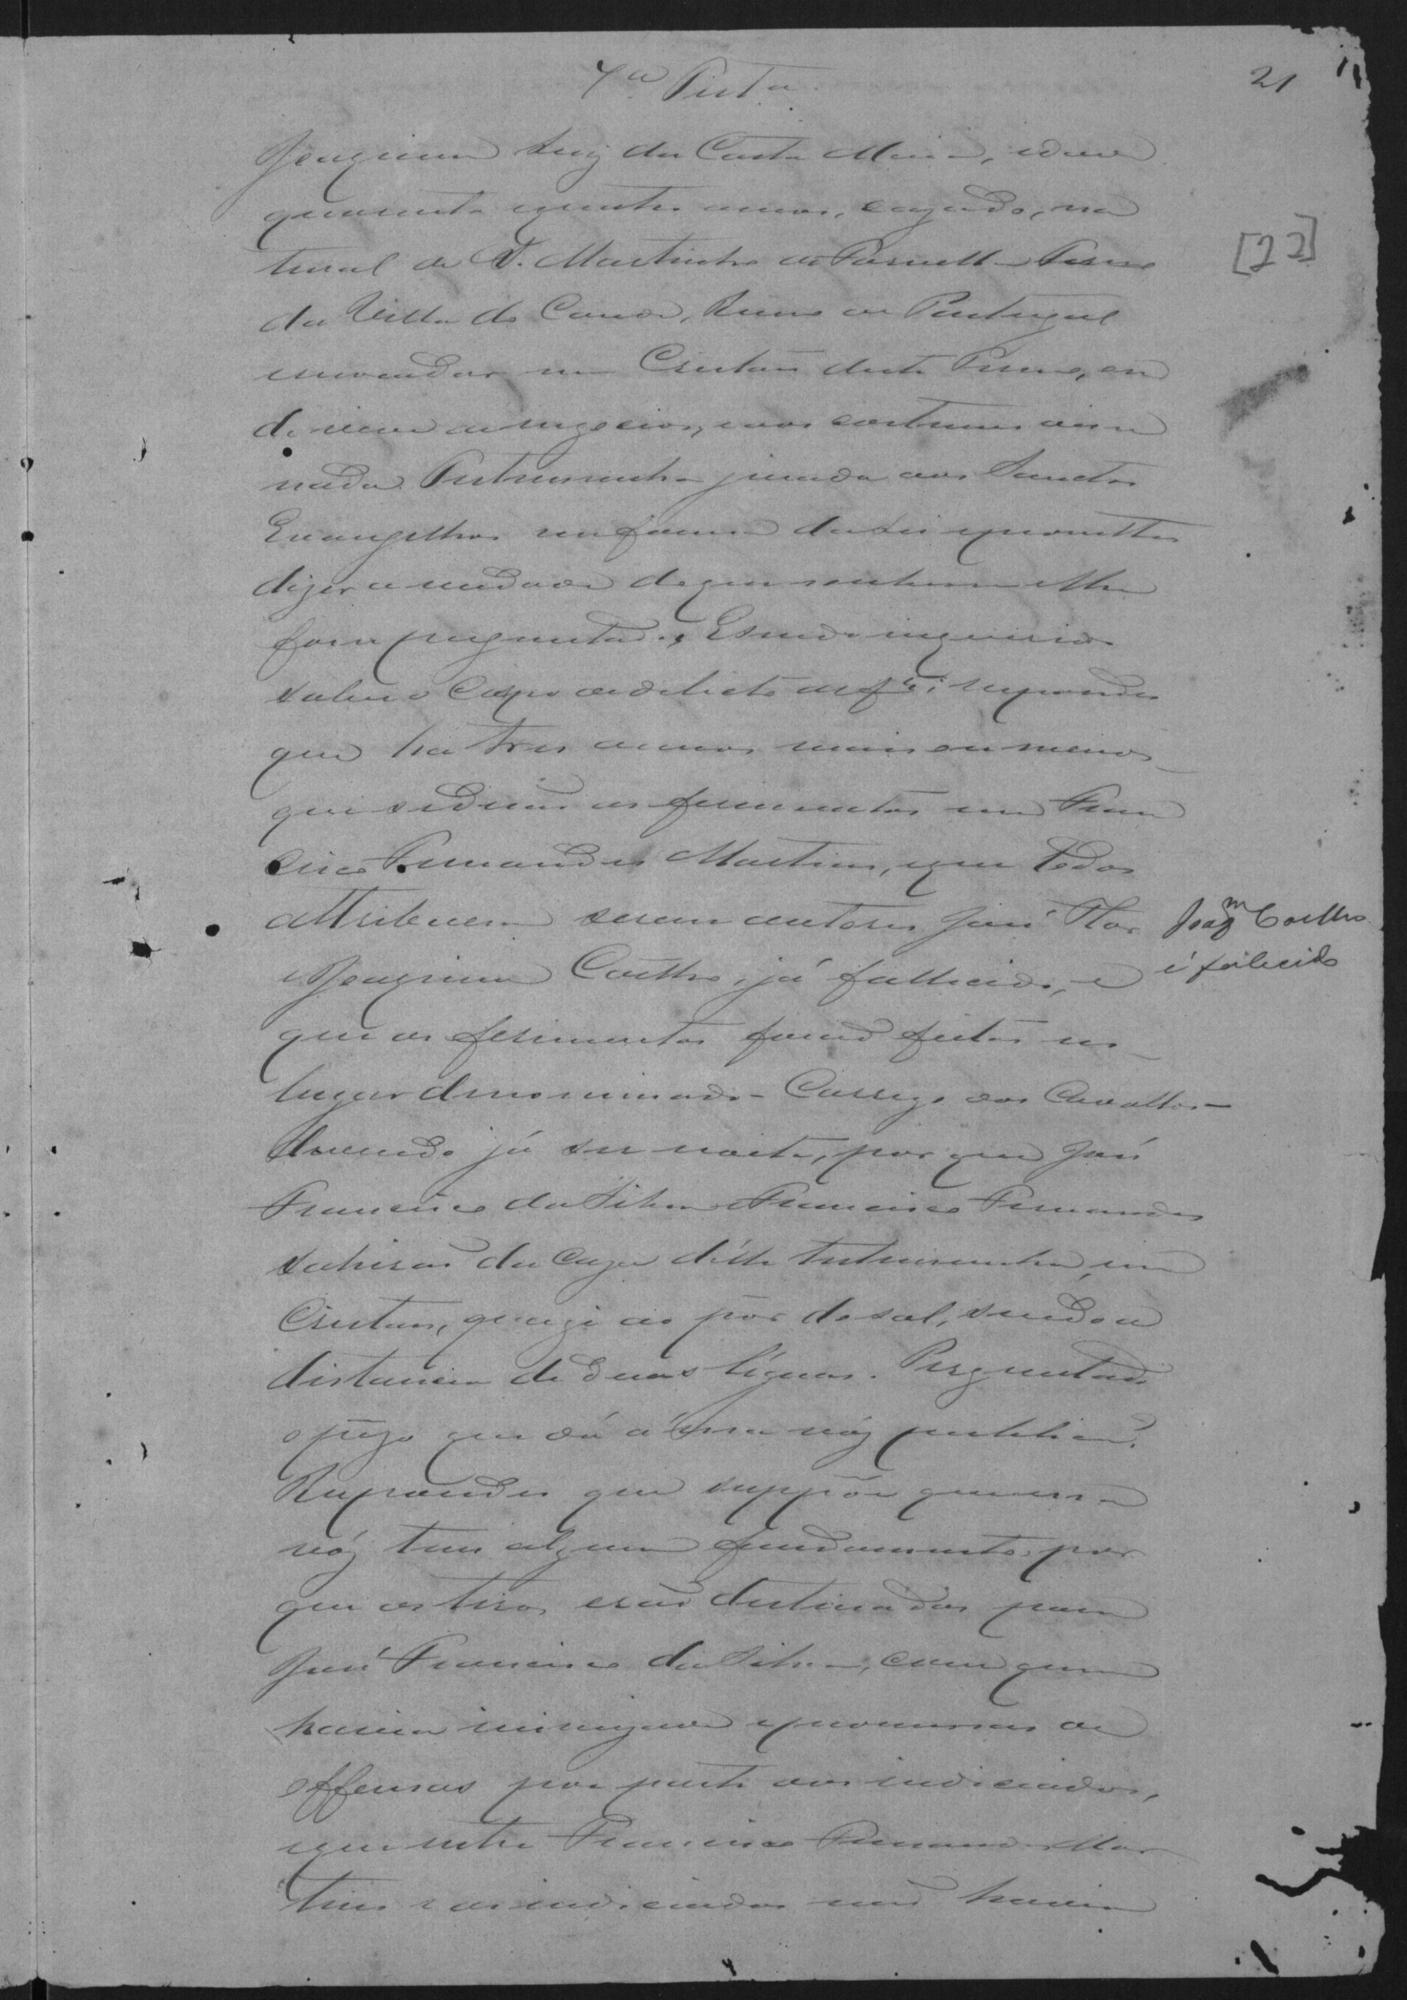 7ª Test.ª
21
[22]
Joaquim Luiz da Costa Maia, idade
quarenta e quatro annos, cazado, na
tural de S. Martinho Termo
da Villa do Conde, Reino de Portugal
morador no deste Termo, on
de vive de negocios, e aos costumes disse
nada. Testemunha jurada aos Sanctos
Evangelhos em forma da Lei e prometteo
dizer a verdade do que soubesse e lhe
fosse perguntado; E sendo inquirido
sobre o Corpo de delicto de f disse: respondeo
que ha tres annos mais ou menos
que se derão os ferimentos em Fran
cisco Fernandes Martins, e que todos
attribuem serem autores José Flor
e Joaquim Coelho, já fallecido, e
que os ferimentos forão feitos no
lugar denominado - Corrego dos Cavallos -
devendo já ser noite, por que José
Francisco da Silva e Francisco Fernandes
sahirão da caza d'elle testemunha, no
quazi ao pôr do sol, sendo a
distancia de duas légoas. Perguntado
o pezo que dá a essa vóz publica?
Respondeo que suppõe que essa
vóz tem algum fundamento, por
que os tiros erão destinados para
José Francisco da Silva, com quem
havia inimizade e promessas de
offensas por parte dos indiciados,
e que entre Francisco Fernandes Mar
tins e os indiciados não havia
Joaqm Coelho
é falecido